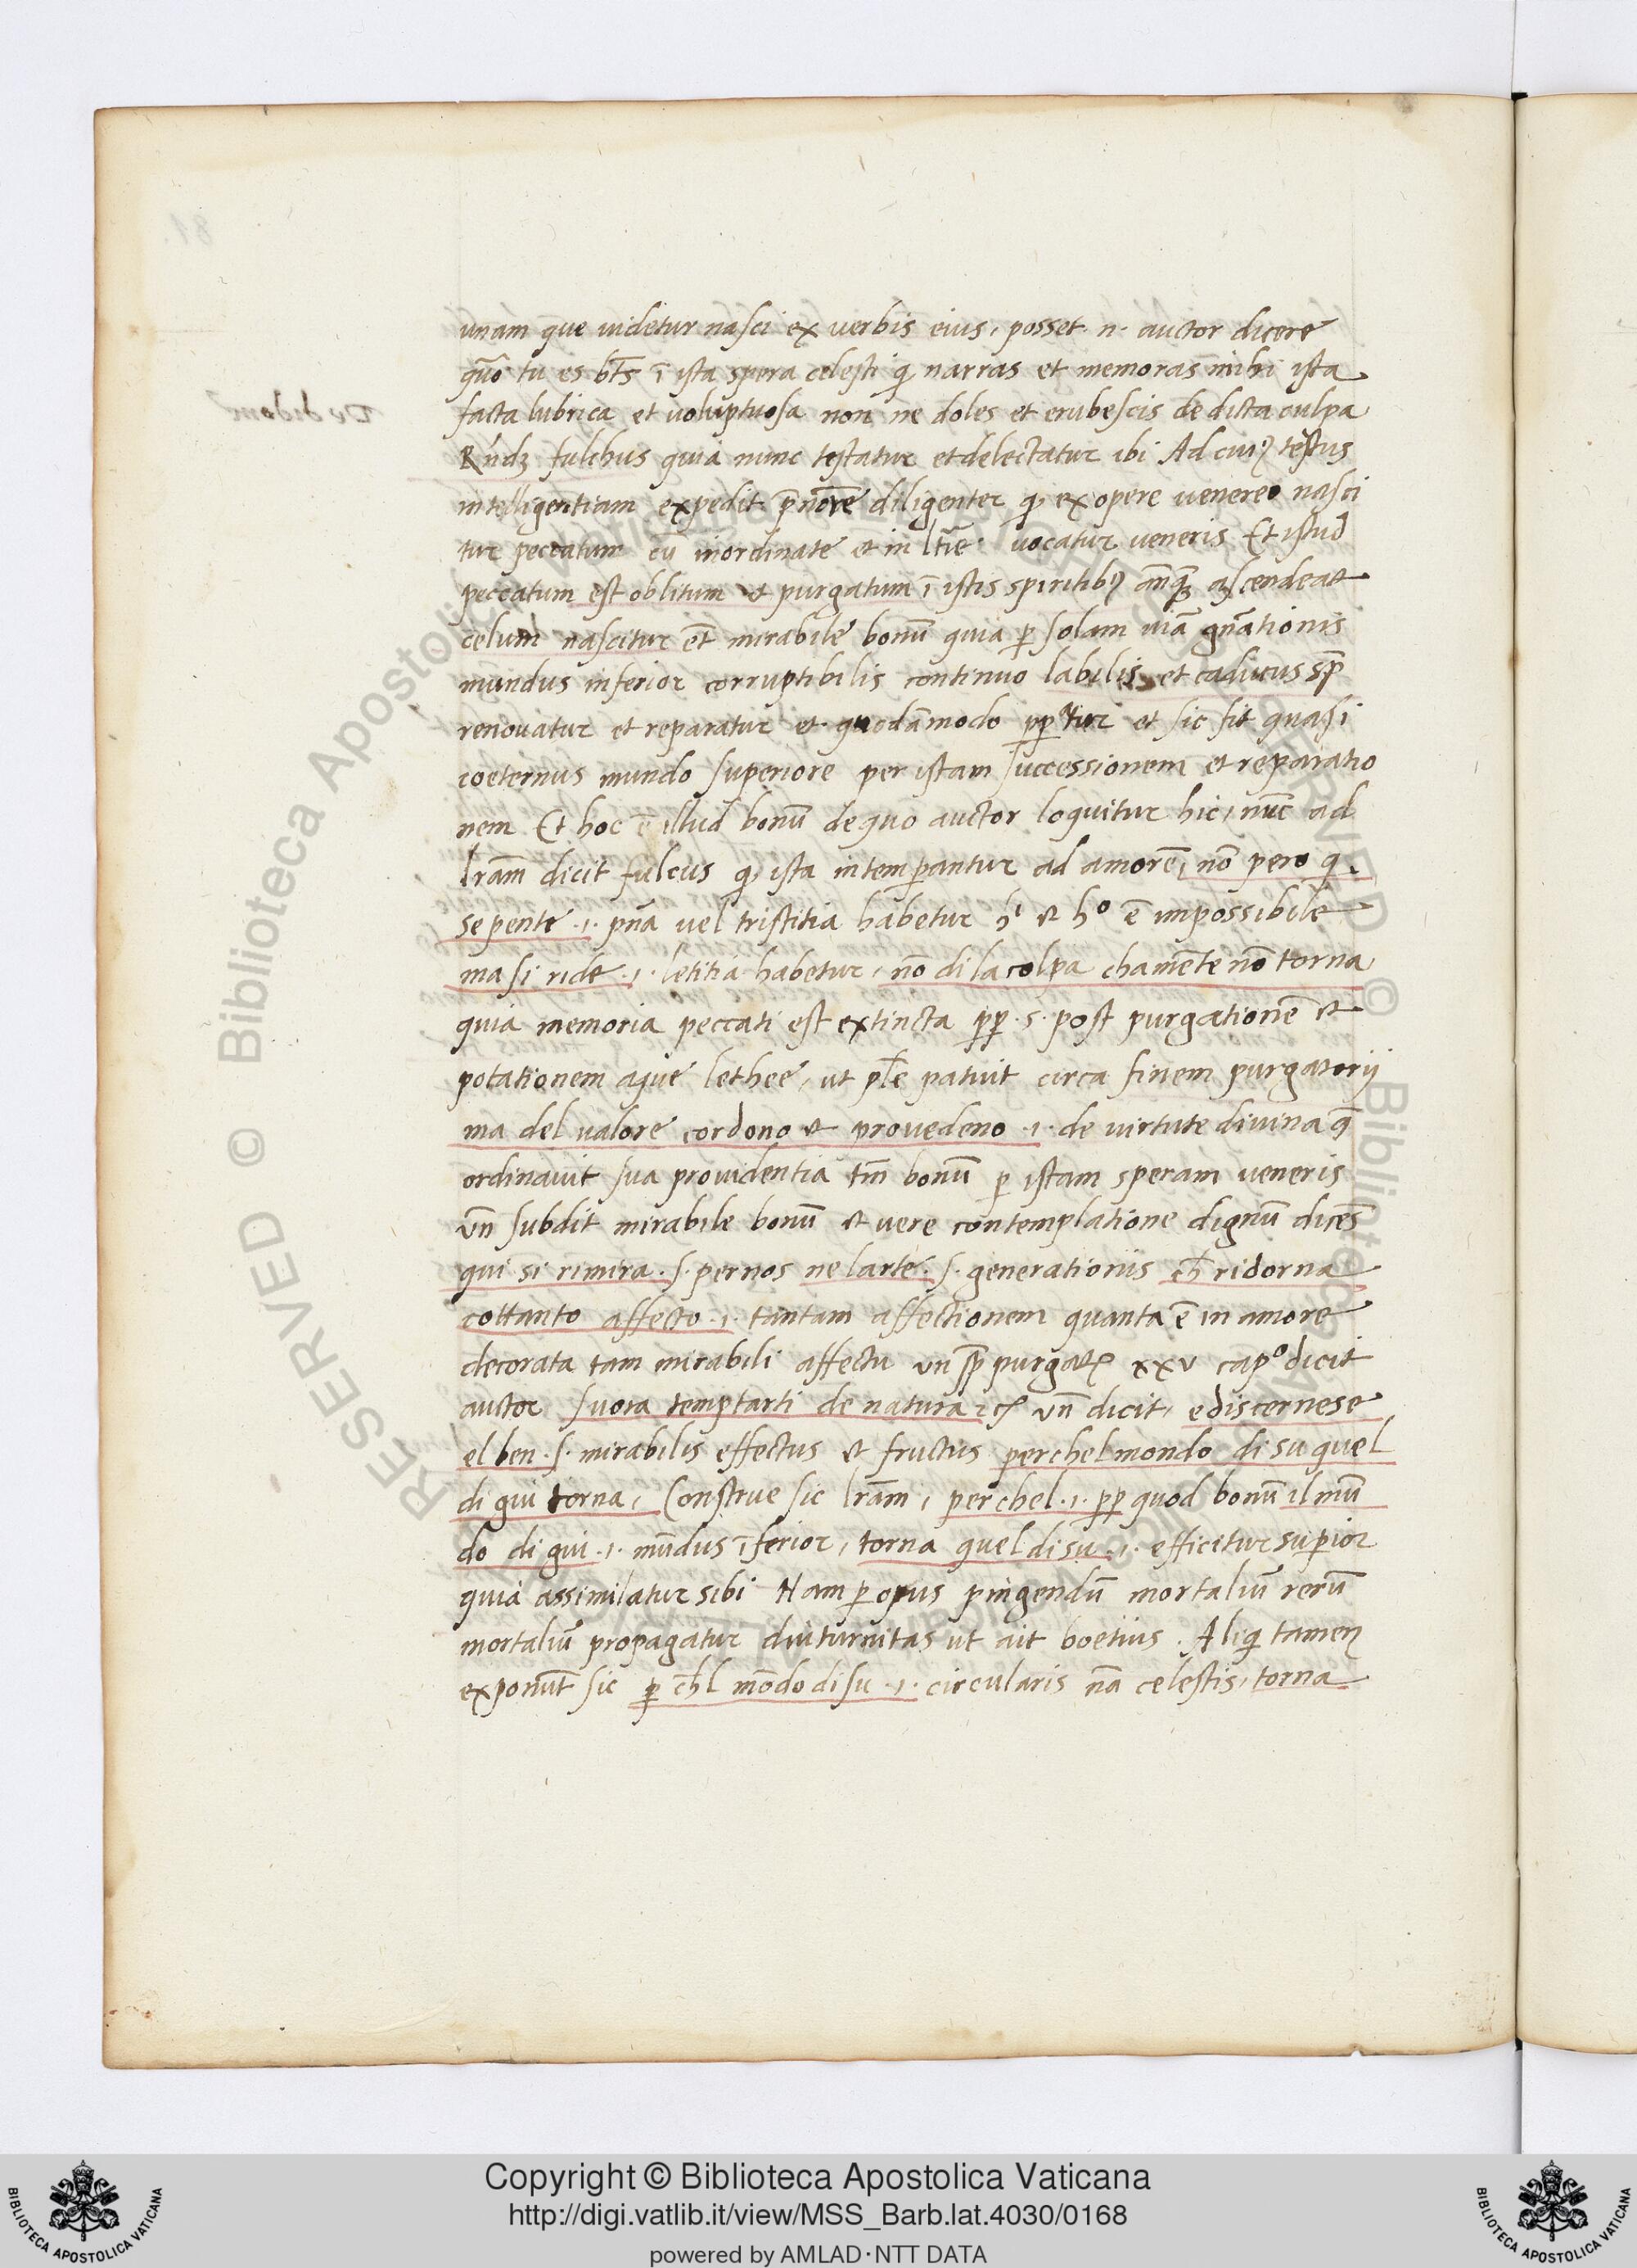 unam que uidetur nasci ex uerbis eius, posset .n. auctor dicere
quō tu es bt̄s ī ista spera celesti qꝫ narras et memoras mihi ista
facta lubrica et uoluptuosa non ne doles et erubescis de dicta culpa
Rñdꝫ fulchus quia nunc testatur et delectatur ibi Ad cuiꝫ testus
intelligentiam expedit p̄notare diligenter qꝫ ex opere uenereo nasci
tur peccatum cū inordinate et in uocatur ueneris Et istud
peccatum est oblitum et purgatum ī istis spiritibꝫ anqꝫ ascendeat
celum nascitur et̄ mirabile bonū quia ꝑ solam uiā gnātionis
mundus inferior corruptibilis continuo labilis et caducus sp̄
renouatur et reparatur et quodāmodo et sic fit quasi
coeternus mundo superiore per istam successionem et reparatio
nem Et hoc ē illud bonū de quo auctor loquitur hic, nūc ad
lrām dicit fulcus qꝫ ista intemꝑantur ad amorē, nō pero q
se pente .i. pn̄a uel tristitia habetur hⁱ et hº ē impossibile
ma si ride .i. letitia habetur, nō di la colpa cha mēte nō torna
quia memoria peccati est extincta ꝓꝑ .s. post purgationē et
potationem aque lethee, ut pl̄e patuit circa finem purgatorij
ma del ualore cordono et prouedeno .i. de uirtute diuina q̄
ordinauit sua prouidentia tm̄ bonū ꝑ istam speram ueneris
vn̄ subdit mirabile bonū et uere contemplatione dignū dicēs
qui si rimira .s. per nos ne larte .s. generationiis ch̄ ridorna
cottanto affecto .i. tantam affectionem quanta ē in amore
decorata tam mirabili affectu vn sp̄ purgatꝭ xxv capº dicit
auctor suora temptarti de natura ⁊cꝭ vn̄ dicit, e discernese
el ben .s. mirabilis effectus et fructus perchel mondo di su quel
di qui torna, Construe sic lrām, perchel .i. ꝓꝑ quod bonū il mū
do di qui .i. mūdus īferior, torna quel di su .i. efficitur suꝑior
quia assimilatur sibi Nam ꝑ opus pingendū mortaliū rerū
mortaliū propagatur diuturnitas ut ait boetius. Aliqꝫ tamen
exponūt sic ꝑ ch̄l mōdo di su .i. circularis nā celestis, torna
Copyright © Biblioteca Apostolica Vaticana
http://digi.vatlib.it/view/MSS_Barb.lat.4030/0168
powered by AMLAD·NTT DATA